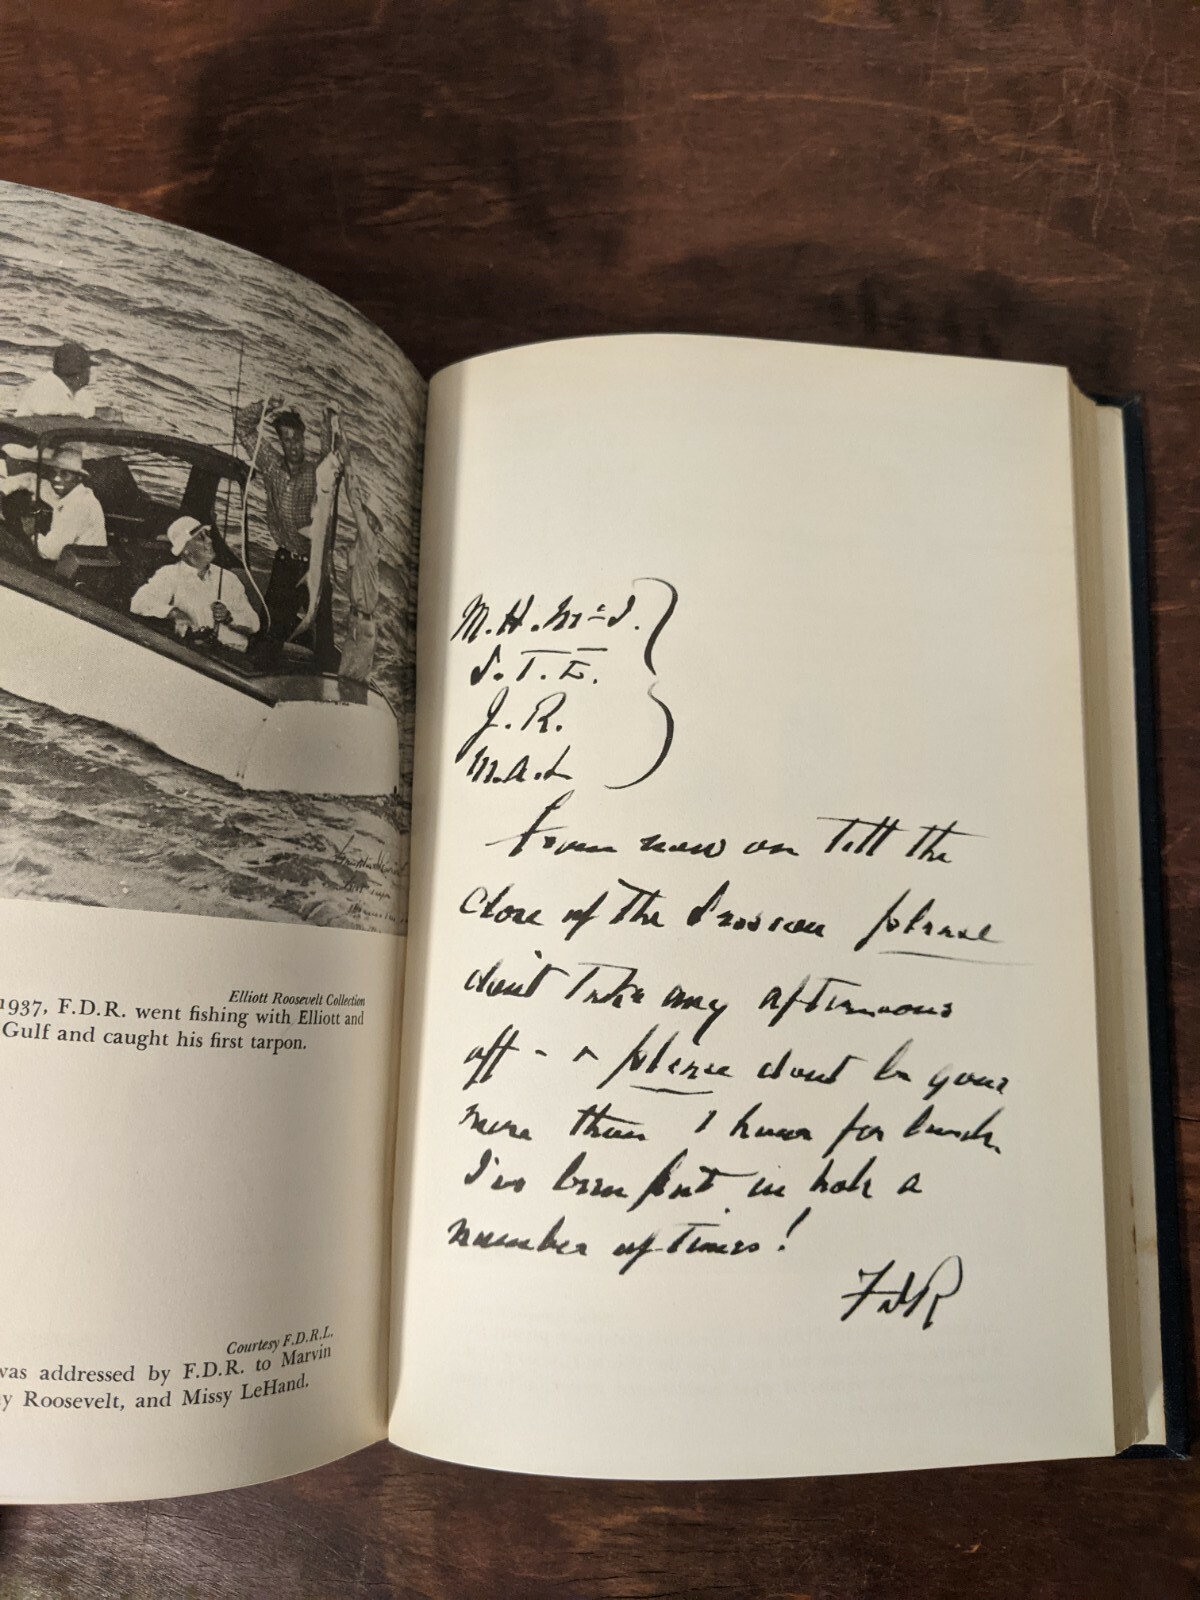 Elliott Roosevelt Collection
1937, F.D.R. went fishing with Elliott and
Gulf and caught his first tarpon.
Courtesy F.D.R.L.
was addressed by F.D.R. to Marvin
Roosevelt, and Missy LeHand.
M.H.McI.
S.T.E.
J.R.
M.A.L
From now on till the
close of the Session please
don't take any afternoons
off - + please dont be gone
more than 1 hour for lunch.
I've been put in hole a
number of times!
FDR